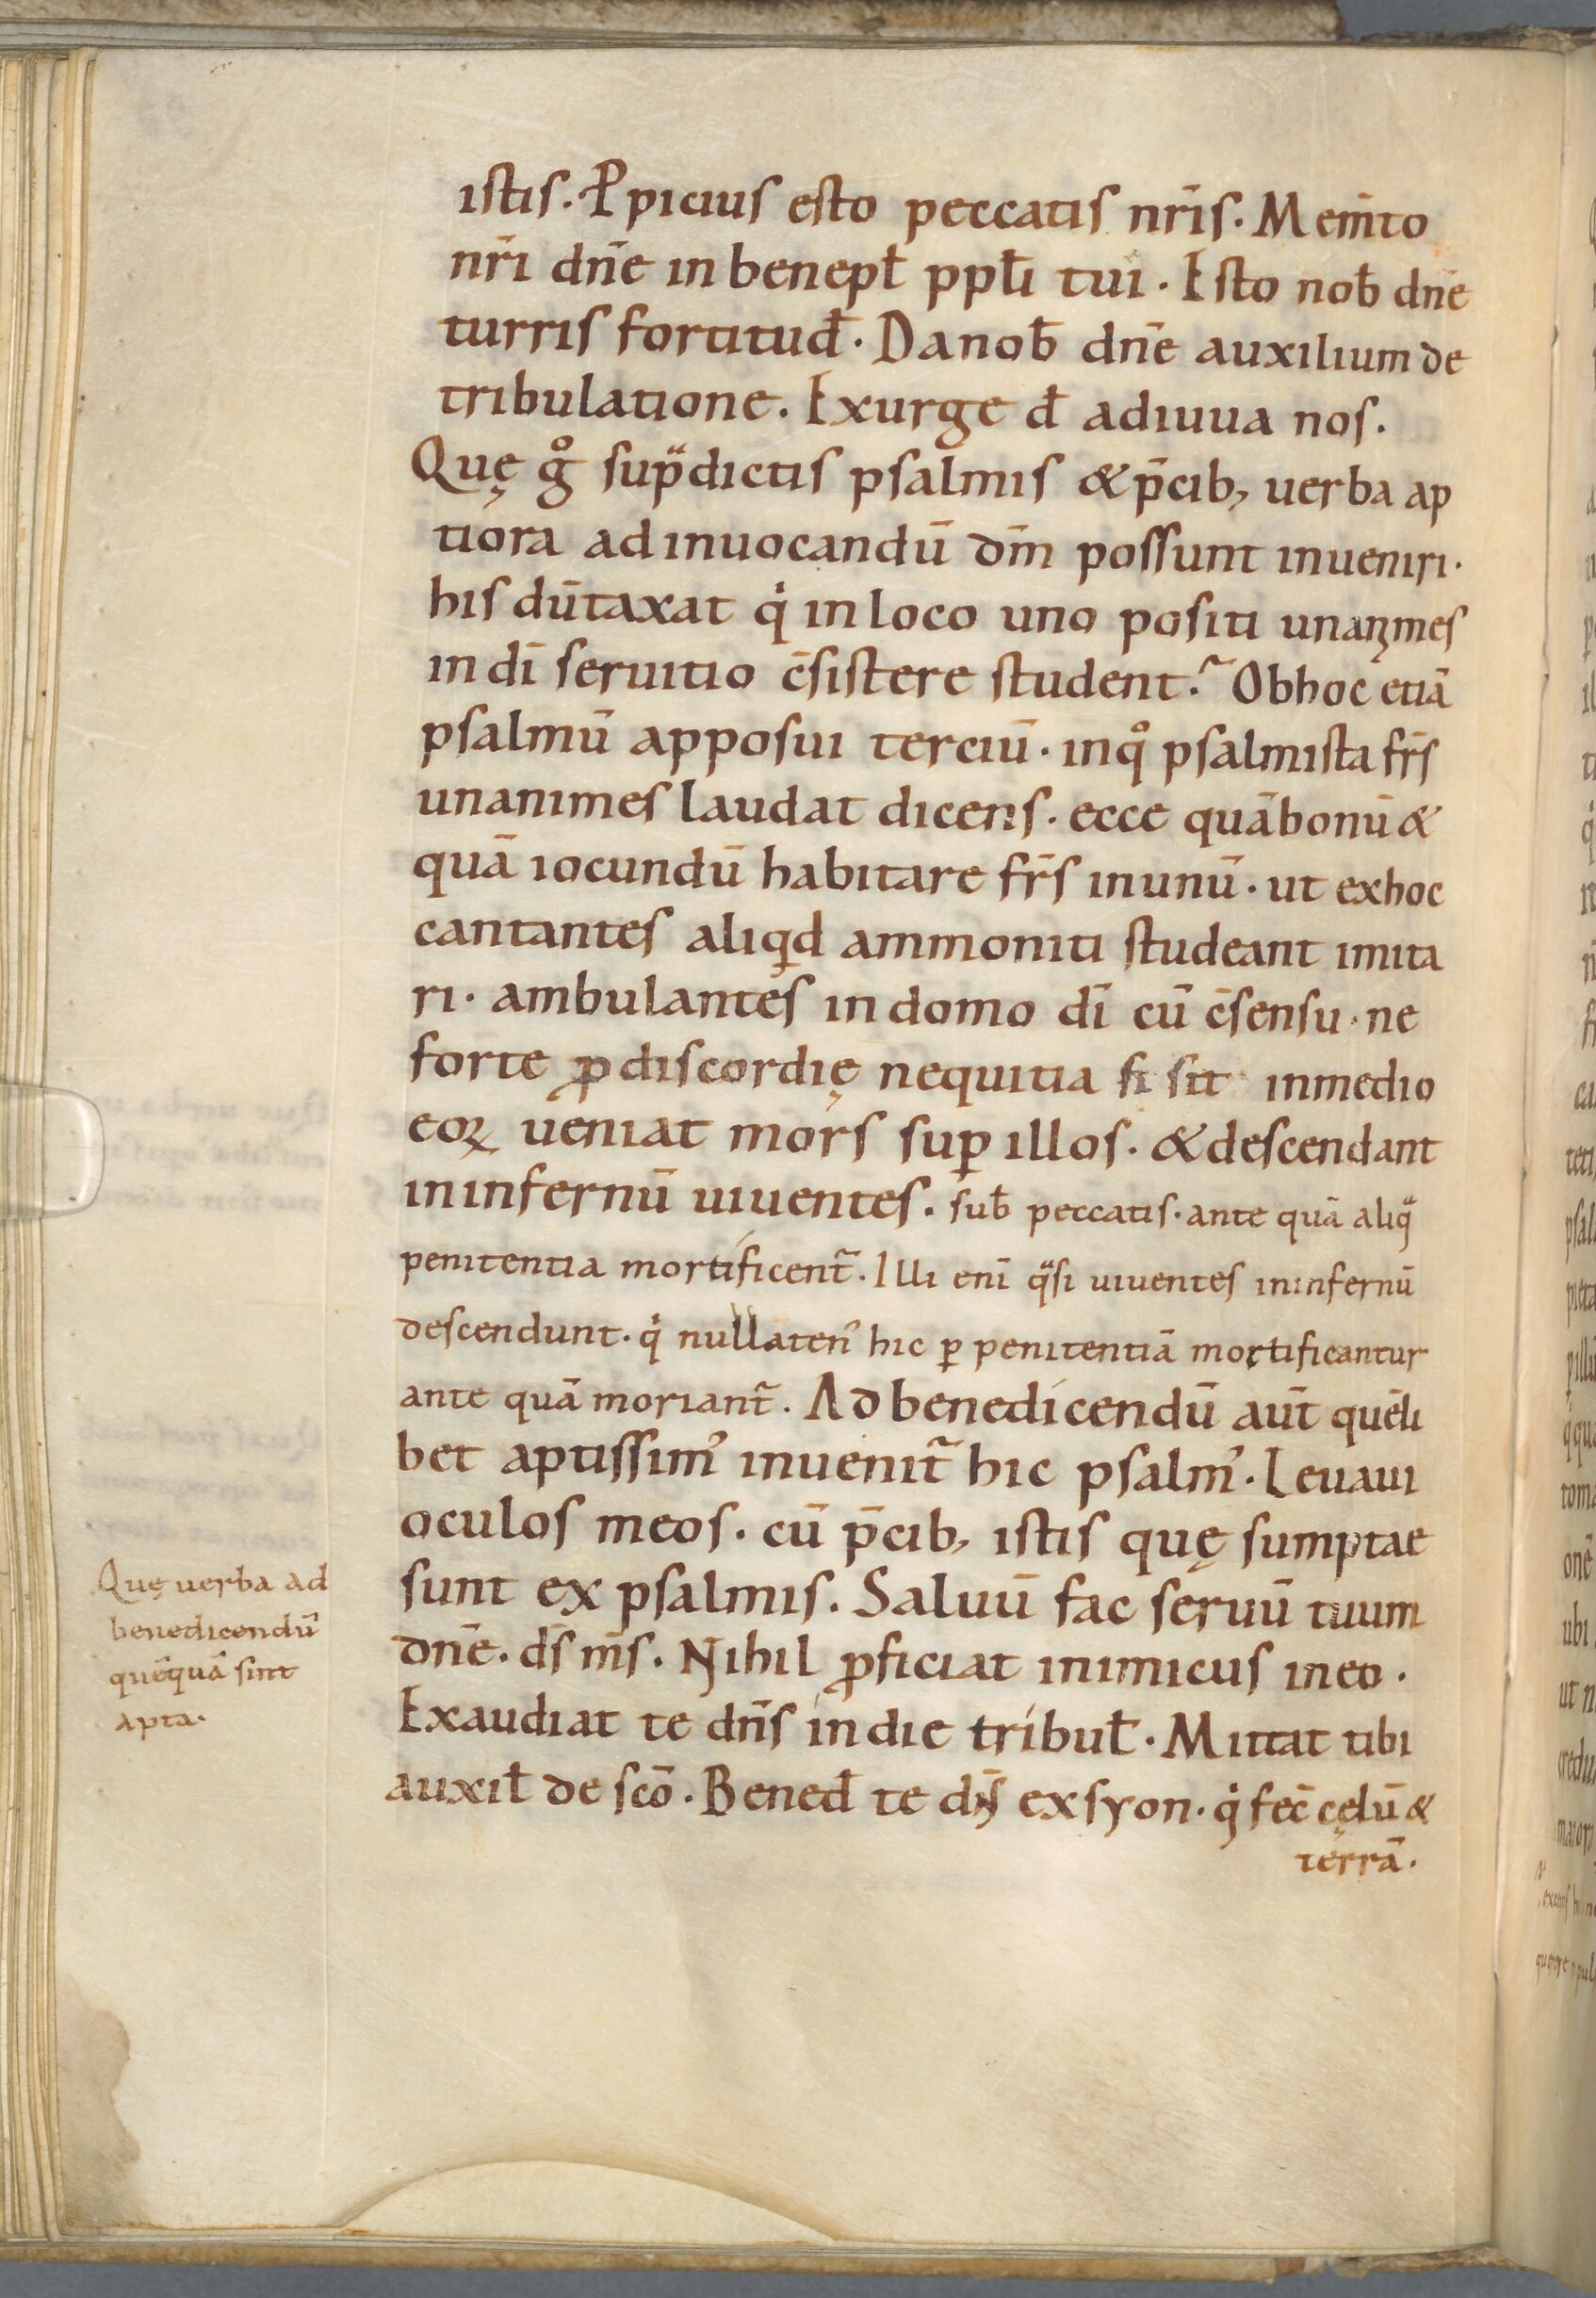 istis. P̄picius esto peccatis nr̄is. Mem̄to
nr̄i dn̄e in benepł ppłi tui. Esto nob̄ dn̄e
turris fortitud̄. Da nob̄ dn̄e auxilium de
tribulatione. Exurge d̄ adiuua nos.
Quę gͦ sup̄dictis psalmis & p̄cib; uerba ap
tiora ad inuocandū dm̄ possunt inueniri.
his dūtaxat qͥ in loco uno positi unanimes
in dī seruitio c̄sistere student? Ob hoc etiā
psalmū apposui terciū. in qͦ psalmista fr̄s
unanimes laudat dicens. ecce quā bonū &
quā iocundū habitare fr̄s in unū. ut ex hoc
cantantes aliqͥd ammoniti studeant imita
ri. ambulantes in domo dī cū c̄sensu. ne
forte ꝓ discordię nequitia si sit in medio
eoꝝ ueniat mors suꝑ illos. & descendant
in infernū uiuentes. sub̄ peccatis. ante quā aliqͣ
penitentia mortificent᷑. Illi enī qͣsi uiuentes in infernū
descendunt. qͥ nullaten᾿ hic ꝑ penitentiā mortificantur
ante quā moriant᷑. Ad benedicendū aūt quēli
bet aptissim᾿ inuenit᷑ hic psalm᾿. Leuaui
oculos meos. cū p̄cib; istis quę sumptae
sunt ex psalmis. Saluū fac seruū tuum
dn̄e. ds̄ ms̄. Nihil ꝓficiat inimicus in eo.
Exaudiat te dn̄s in die tribuł. Mittat tibi
auxił de sc̄o. Bened̄ te dn̄s ex syon. qͥ fec̄ cęlū &
terrā.
Quę uerba ad
benedicendū
quēquā sint
apta.